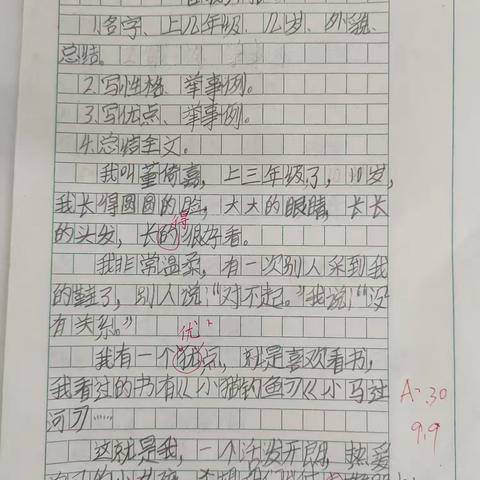 1.名字、上几年级、几岁、外貌、
总结。
2.写性格、举事例。
3.写优点、举事例。
4.总结全文。
我叫董倚嘉，上三年级了，10岁，
我长得圆圆的脸，大大的眼睛，长长
得
的头发，长的很好看。
我非常温柔，有一次别人采到我
的鞋了，别人说：“对不起。”我说：“没
有关系。”
优
我有一个点，就是喜欢看书，
我看过的书有《小猫钓鱼》《小马过
河》……
A- .30
9.9
这就是我，一个活发开朗，热爱